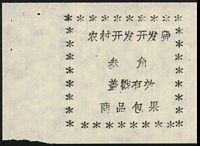 农村开发开发部
叁角
盖戳有效
商品包果